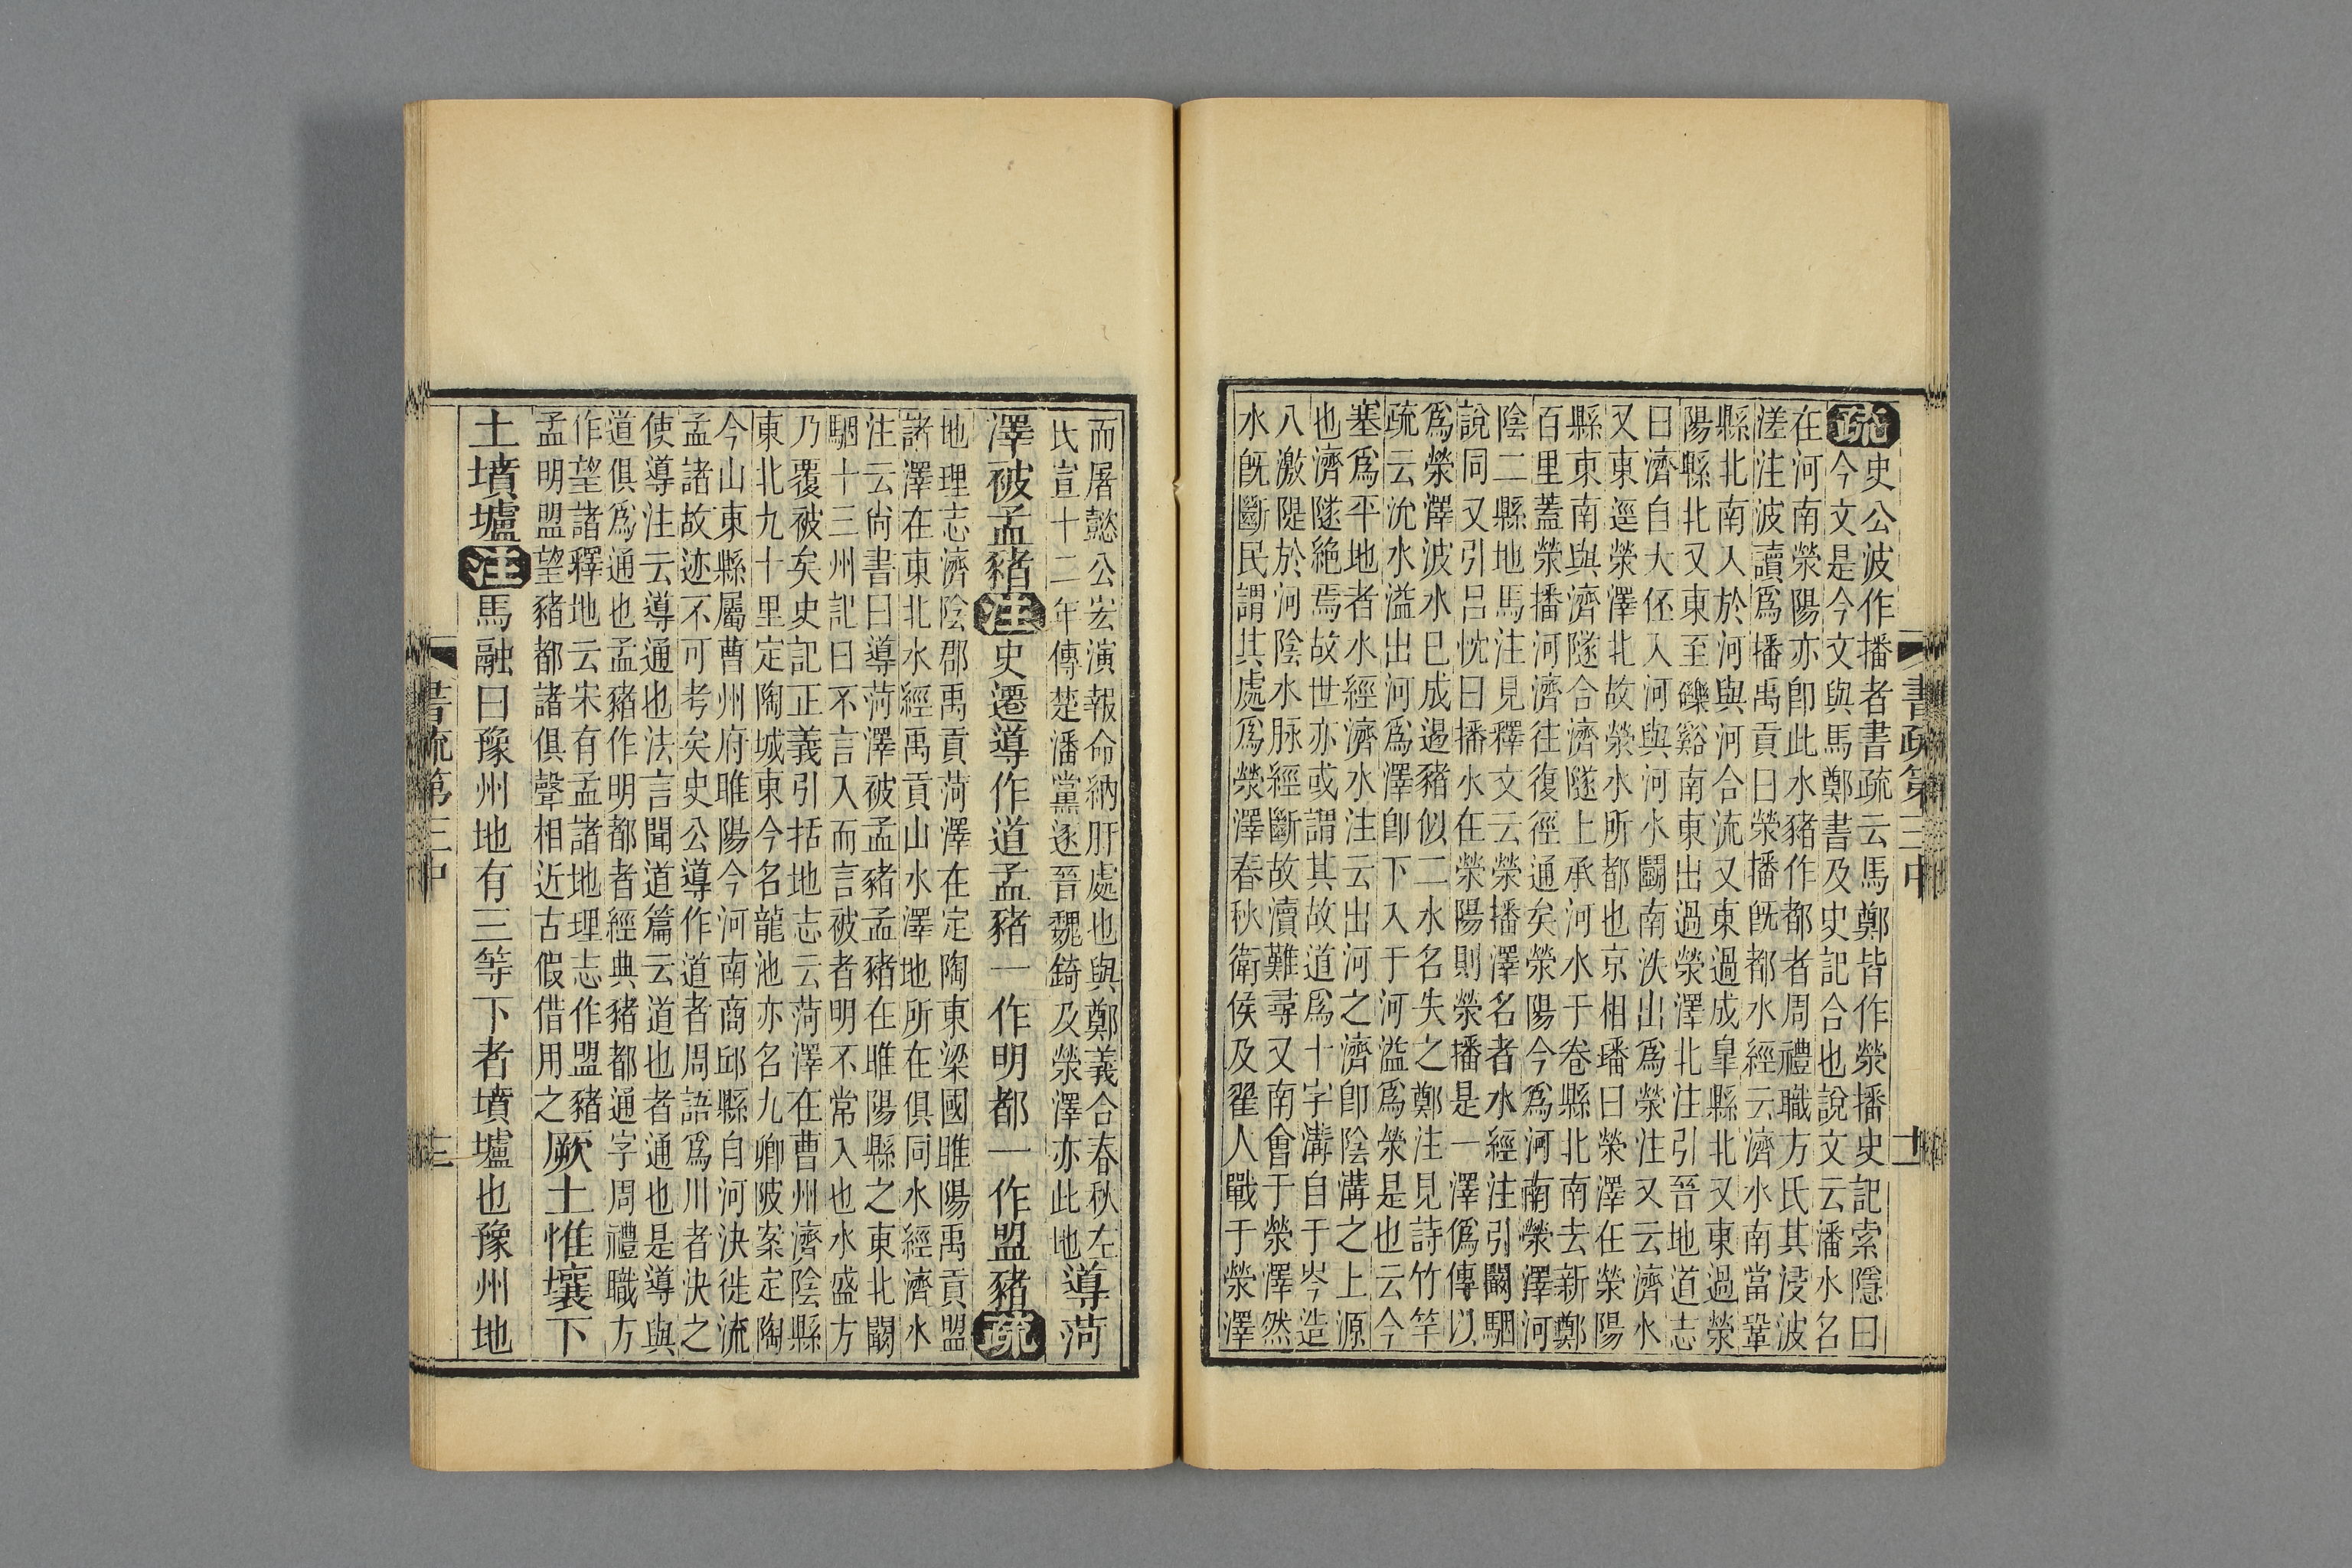 疏
史公波作播者書疏云馬鄭皆作滎播史記索隱曰
今文是今文與馬鄭書及史記合也說文云潘水名
在河南滎陽亦卽此水豬作都者周禮職方氏其浸波
溠注波讀爲播禹貢曰滎播旣都水經云濟水南當鞏
縣北南入於河與河合流又東過成皐縣北又東過滎
陽縣北又東至礫谿南東出過滎澤北注引晉地道志
曰濟自大伾入河與河水鬭南泆出爲滎注又云濟水
又東逕滎澤北故滎水所都也京相璠曰滎澤在滎陽
縣東南與濟隧合濟隧上承河水于卷縣北南去新鄭
百里蓋滎播河濟往復徑通矣滎陽今爲河南滎澤河
陰二縣地馬注見釋文云滎播澤名者水經注引闞駰
說同又引呂忱曰播水在滎陽則滎播是一澤僞傳以
爲滎澤波水已成遏豬似二水名失之鄭注見詩竹竿
疏云沇水溢出河爲澤卽下入于河溢爲滎是也云今
塞爲平地者水經濟水注云出河之濟卽陰溝之上源
也濟隧絶焉故世亦或謂其故道爲十字溝自于岑造
八激隄於河陰水脉經斷故瀆難尋又南會于滎澤然
水旣斷民謂其處爲滎澤春秋衛侯及翟人戰于滎澤
書疏第三中
十二
而屠懿公宏演報命納肝處也與鄭義合春秋左
氏宣十二年傳楚潘黨逐晉魏錡及滎澤亦此地
導菏
澤被孟豬注史遷導作道孟豬一作明都一作盟豬疏
地理志濟陰郡禹貢菏澤在定陶東梁國睢陽禹貢盟
諸澤在東北水經禹貢山水澤地所在俱同水經濟水
注云尚書曰導菏澤被孟豬孟豬在睢陽縣之東北闞
駰十三州記曰不言入而言被者明不常入也水盛方
乃覆被矣史記正義引括地志云菏澤在曹州濟陰縣
東北九十里定陶城東今名龍池亦名九卿陂案定陶
今山東縣屬曹州府睢陽今河南商邱縣自河決徙流
孟諸故迹不可考矣史公導作道者周語爲川者決之
使導注云導通也法言聞道篇云道也者通也是導與
道俱爲通也孟豬作明都者經典豬都通字周禮職方
作望諸釋地云宋有孟諸地理志作盟豬
孟明盟望豬都諸俱聲相近古假借用之
厥土惟壤下
土墳壚注馬融曰豫州地有三等下者墳壚也豫州地
書疏第三中
十三